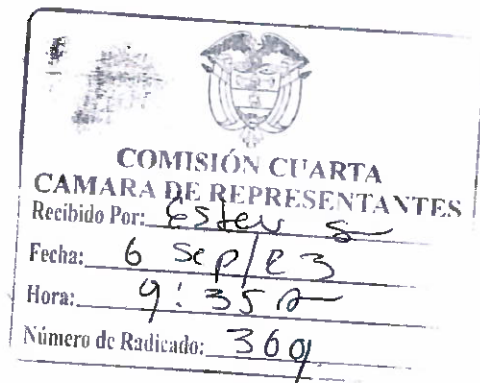 COMISIÓN CUARTA
CAMARA DE REPRESENTANTES
Recibido Por:
Fecha: 6 Sep/23
Hora: 9:35 a
Número de Radicado: 369